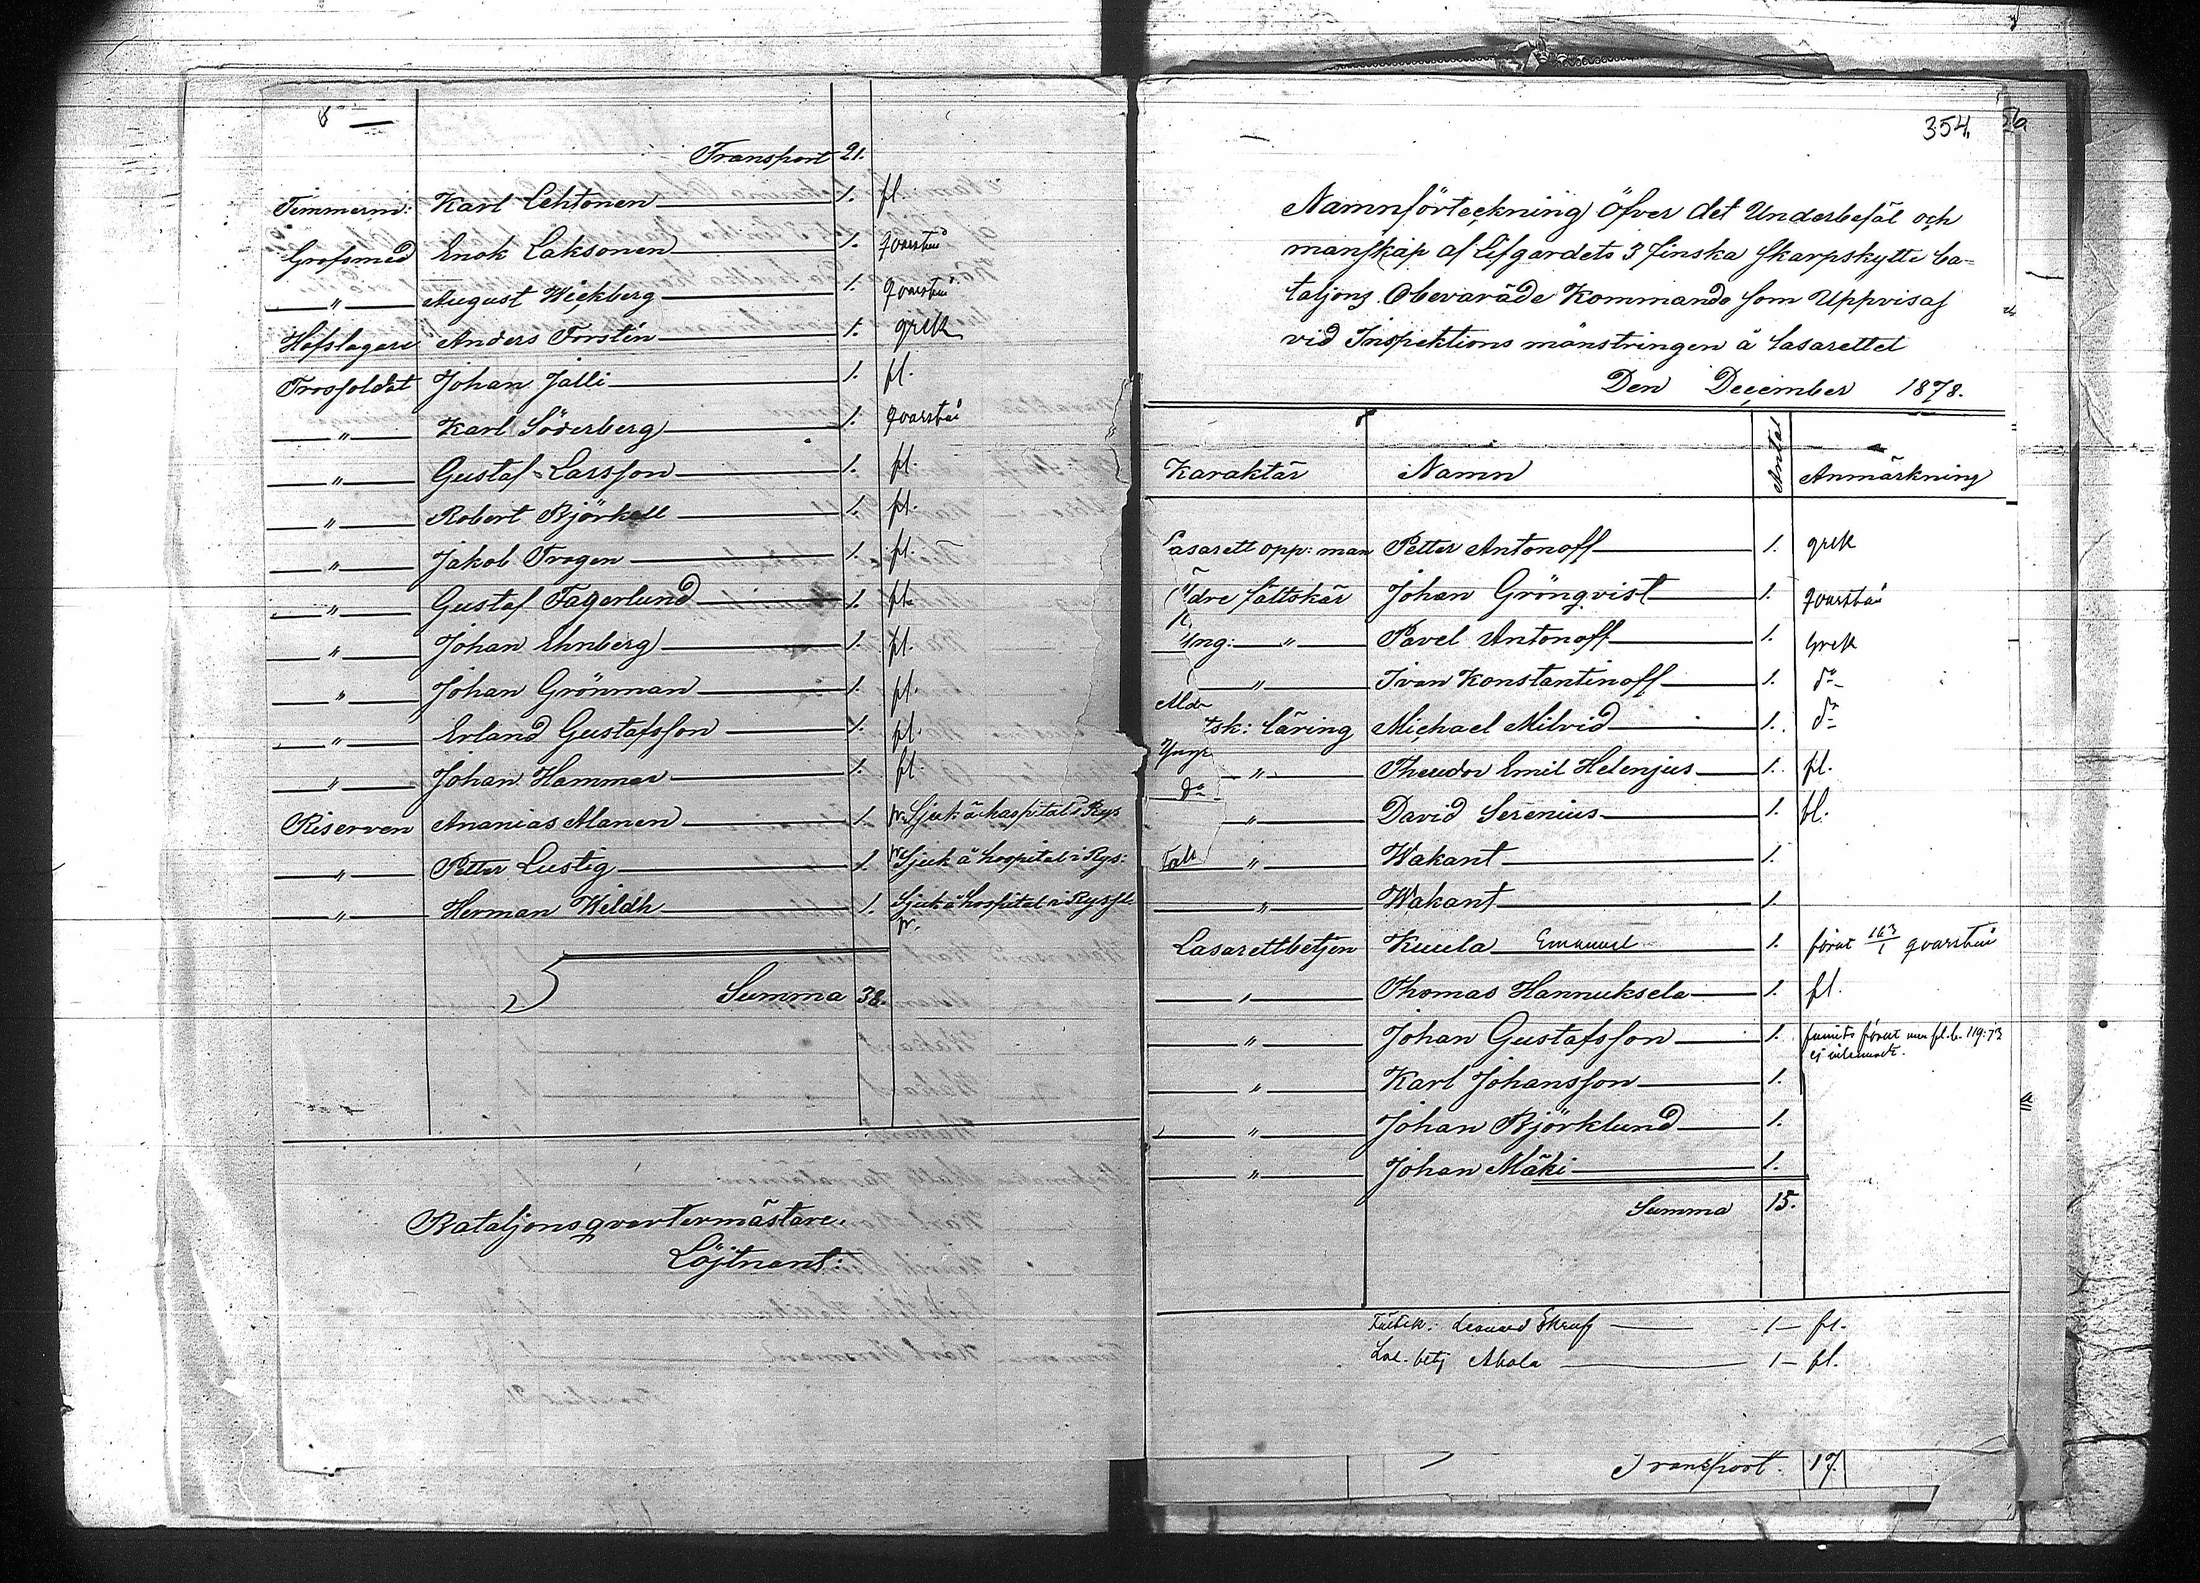 Transport 21.
Timmerm: Karl Lehtonen 1. fl.
Grofsmed Enok Laksonen 1. qvarstår
" August Wickberg 1. qvarstår
Hofslagare Anders Forstén 1. grek
Trossoldat Johan Jalli 1. fl.
" Karl Söderberg 1. qvarstår
" Gustaf Larsson 1. fl.
" Robert Björkell 1. fl.
" Jakob Trogen 1. fl.
" Gustaf Fagerlund 1. fl.
" Johan Ehnberg 1. fl.
" Johan Grönman 1. fl.
" Erland Gustafsson 1. fl.
" Johan Hammar 1. fl.
Riserven Ananias Alanen 1. Sjuk å hospital i Rys
" Petter Lustig 1. Sjuk å hospital i Rys:
" Herman Wildh 1. Sjuk å hospital i Ryssl.
Summa 38.
Bataljonsqvartermästare.
Löjtnant:
354.
Namnförteckning öfver det Underbefäl och
manskap af Lifgardets 3 finska skarpskytte ba-
taljons Obevaräde Kommando som Uppvisas
vid Inspektions mönstringen å Lasarettet
Den December 1878.
Karaktär Namn Antal Anmärkning
Lasarett opp: man Petter Antonoff 1. grek
Äldre fältskär Johan Grönqvist 1. qvarstår
Yng: " Pavel Antonoff 1. Grek
" Ivan Konstantinoff 1. do
Äldr
tsk: läring Michael Milvid 1. do
Yngr
" Theudor Emil Helenjus 1. fl.
do
" David Serenius 1. fl.
" Wakant 1.
" Wakant 1.
Lasarettbetjen Kuula Emanuel 1. förut 163/1 qvarstår
" Thomas Hannuksela 1. fl.
" Johan Gustafsson 1. förut fl. 119:73
ej
" Karl Johansson 1.
" Johan Björklund 1.
" Johan Mäki 1.
Summa 15.
Leonard 1 fl.
betj Ahola 1 fl.
Transport. 17